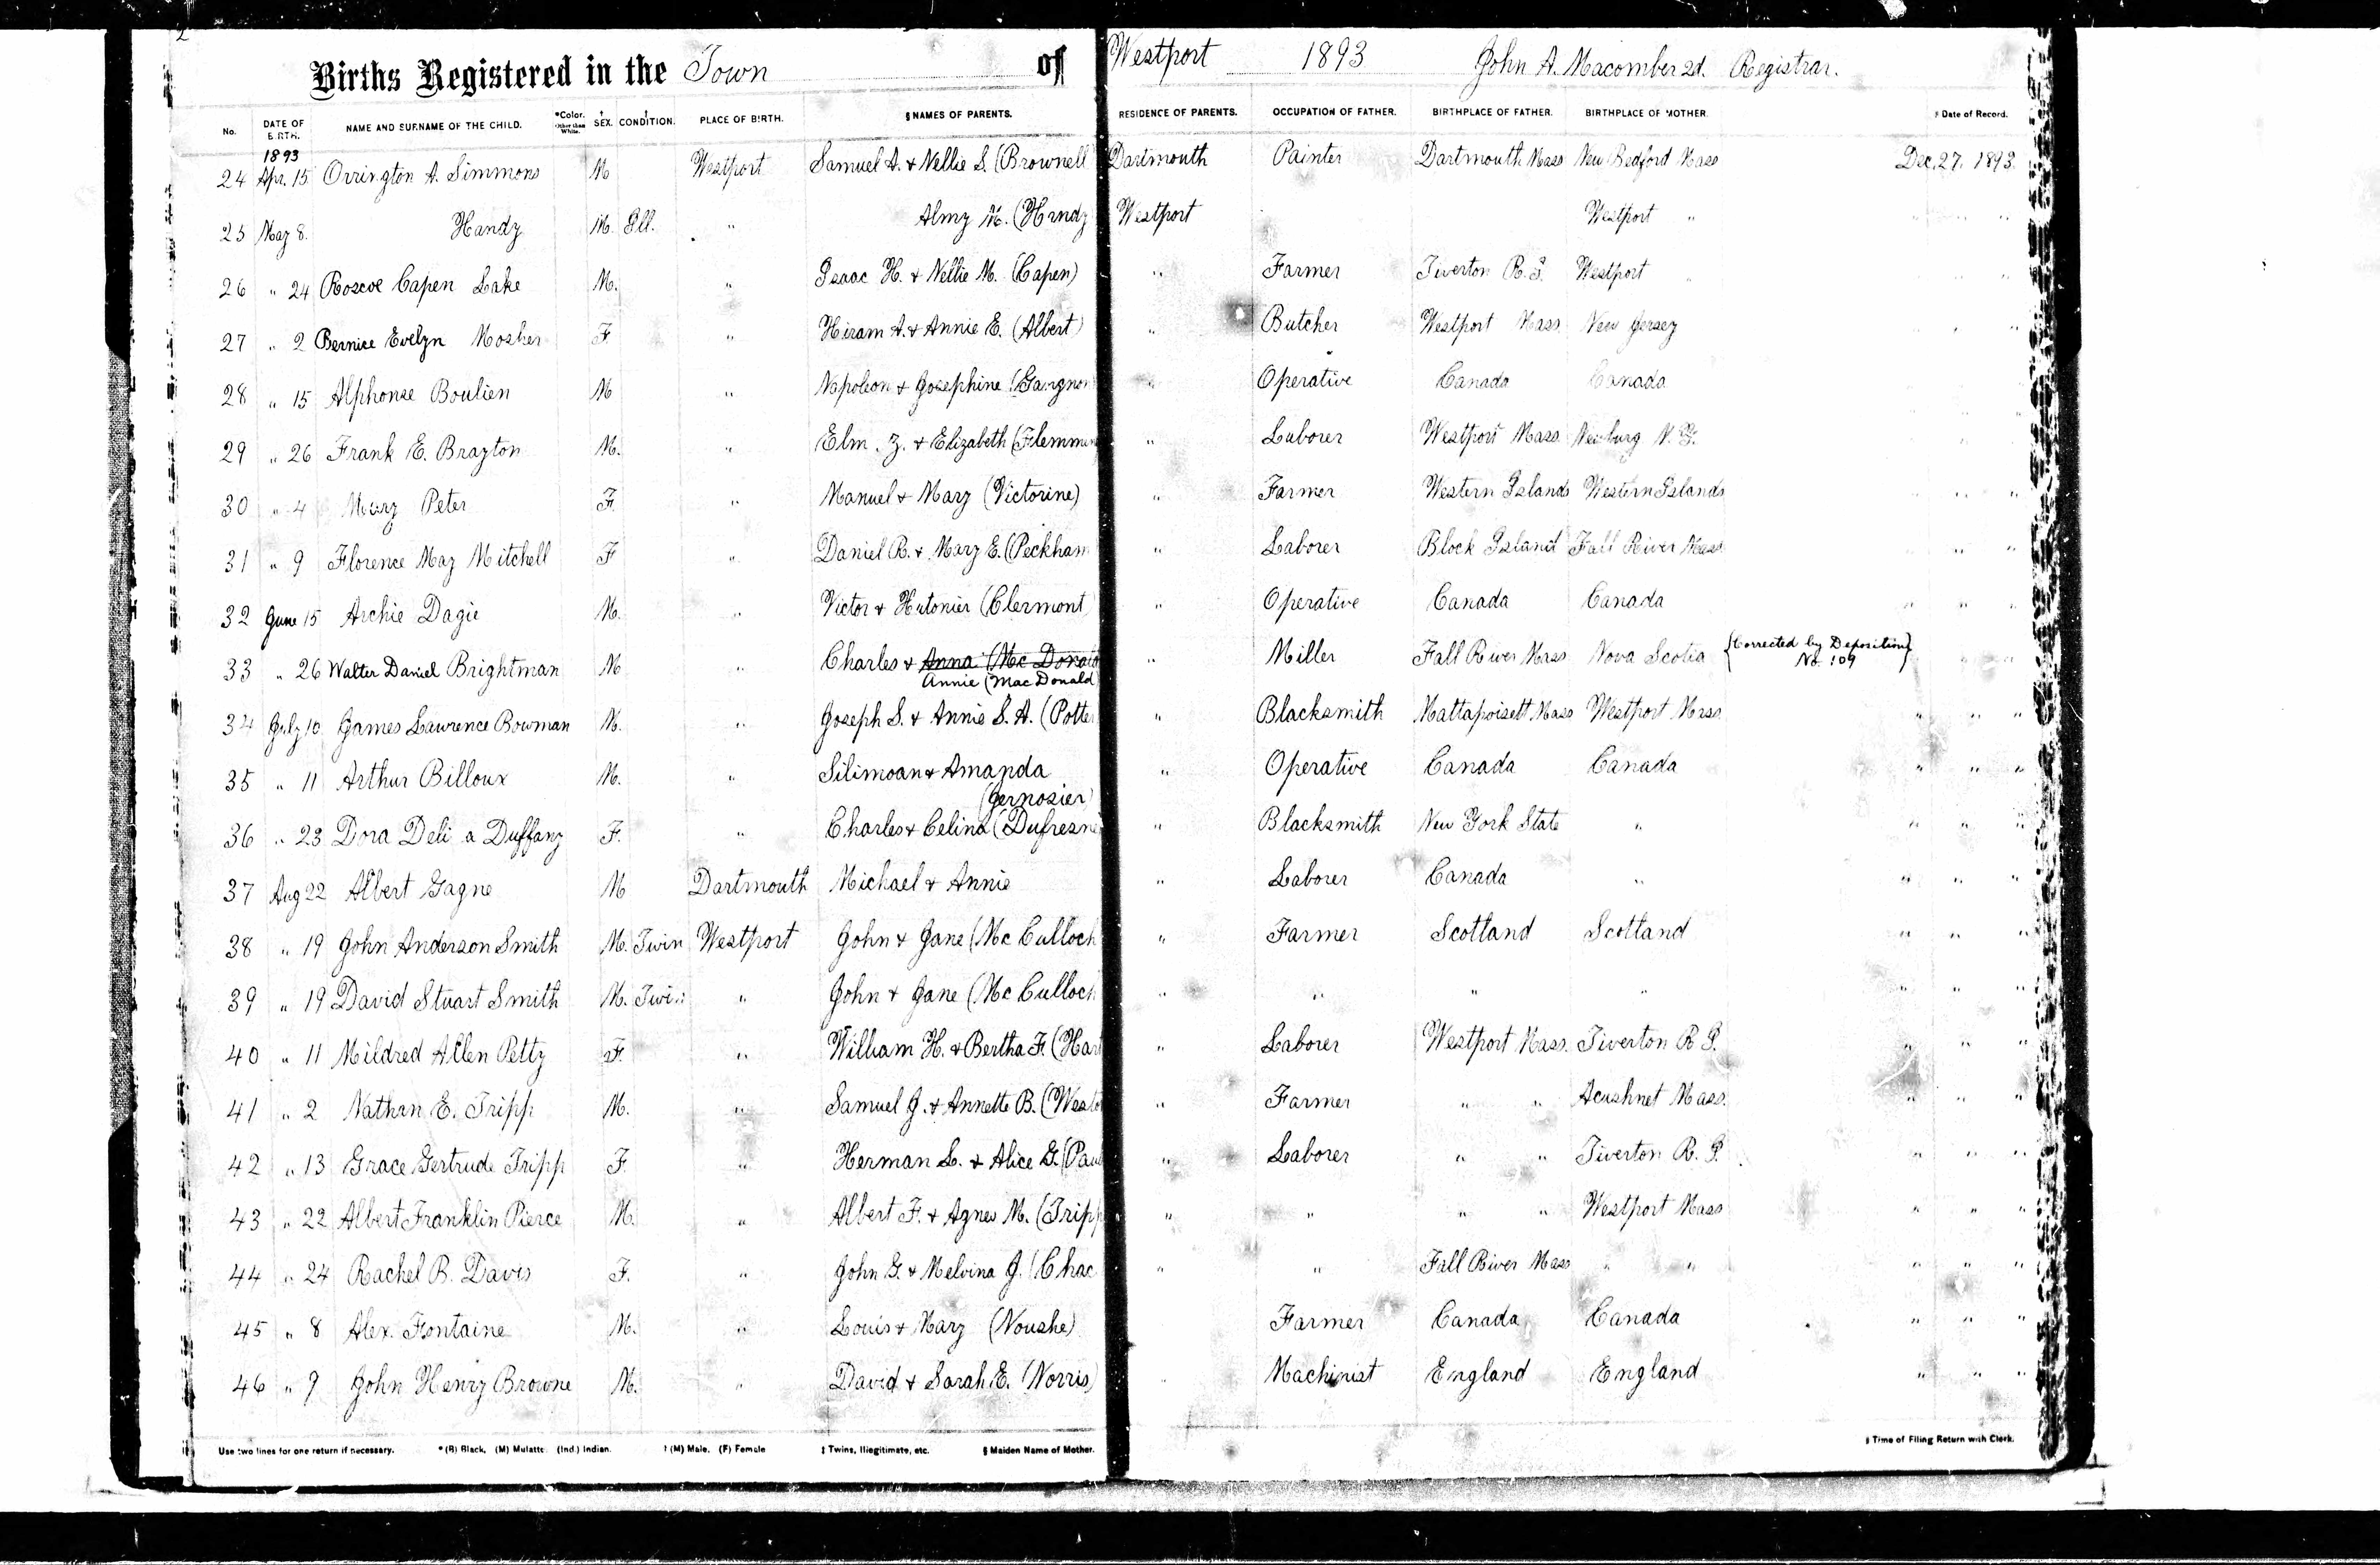 2
Births Registered in the Town of Westport 1893 John A. Macomber 2d. Registrar.
No. DATE OF BIRTH. NAME AND SURNAME OF THE CHILD. *Color. Other than White. † SEX. ‡ CONDITION. PLACE OF BIRTH. § NAMES OF PARENTS. RESIDENCE OF PARENTS. OCCUPATION OF FATHER. BIRTHPLACE OF FATHER. BIRTHPLACE OF MOTHER. Date of Record.
1893
24 Apr. 15 Orrington A. Simmons M Westport Samuel A. & Nellie S. (Brownell Dartmouth Painter Dartmouth Mass New Bedford Mass Dec. 27, 1893.
25 May 8. Handy M. Ill. " Almy M. (Handy Westport Westport " " " "
26 " 24 Roscoe Capen Lake M. " Isaac H. & Nellie M. (Capen) " Farmer Tiverton R.I. Westport " " "
27 " 2 Bernice Evelyn Mosher F. " Hiram A. & Annie E. (Albert) " Butcher Westport Mass New Jersey " " "
28 " 15 Alphonse Boulien M " Napoleon & Josephine " Operative Canada Canada " "
29 " 26 Frank E. Brayton M. " Z. & Elizabeth (Flemming " Laborer Westport Mass Newburg N.Y. " "
30 " 4 Mary Peter F. " Manuel & Mary (Victorine) " Farmer Western Islands Western Islands " " "
31 " 9 Florence May Mitchell F " Daniel R. & Mary E. (Peckham " Laborer Block Island Fall River Mass " " "
32 June 15 Archie Dagie M. " Victor & (Clermont) " Operative Canada Canada " " "
33 " 26 Walter Daniel Brightman M " Charles & Anna (Mc Donald " Miller Fall River Mass Nova Scotia {Corrected by Deposition} " "
Annie (MacDonald) No. 109
34 July 10 James Lawrence Bowman M. " Joseph S. & Annie S. A. (Potter " Blacksmith Mattapoisett Mass Westport Mass " " "
35 " 11 Arthur Billoux M. " Silimoan & Amanda " Operative Canada Canada " " "
(Jernosier)
36 " 23 Dora Deli a Duffany F. " Charles & Celina (Dufresne " Blacksmith New York State " " " "
37 Aug 22 Albert Gagne M Dartmouth Michael & Annie " Laborer Canada " " " "
38 " 19 John Anderson Smith M. Twin Westport John & Jane (Mc Culloch " Farmer Scotland Scotland " " "
39 " 19 David Stuart Smith M. Twin " John & Jane (Mc Culloch " " " " " " "
40 " 11 Mildred Allen Petty F. " William H. & Bertha F. (Hart " Laborer Westport Mass. Tiverton R I. " " "
41 " 2 Nathan E. Tripp M. " Samuel J. & Annette B. " Farmer " " Acushnet Mass. " " "
42 " 13 Grace Gertrude Tripp F. " Herman L. & Alice G. " Laborer " " Tiverton R. I. " " "
43 " 22 Albert Franklin Pierce M. " Albert F. & Agnes M. (Tripp " " " " Westport Mass " " "
44 " 24 Rachel B. Davis F. " John G. & Melvina J. (Chac " " Fall River Mass " " " " "
45 " 8 Alex. Fontaine M. " Louis & Mary (Noushe) Farmer Canada Canada " " "
46 " 9 John Henry Browne M. " David & Sarah E. (Norris) " Machinist England England " " "
Use two lines for one return if necessary. * (B) Black, (M) Mulatto. (Ind.) Indian. † (M) Male. (F) Female ‡ Twins, Illegitimate, etc. § Maiden Name of Mother. Time of Filing Return with Clerk.